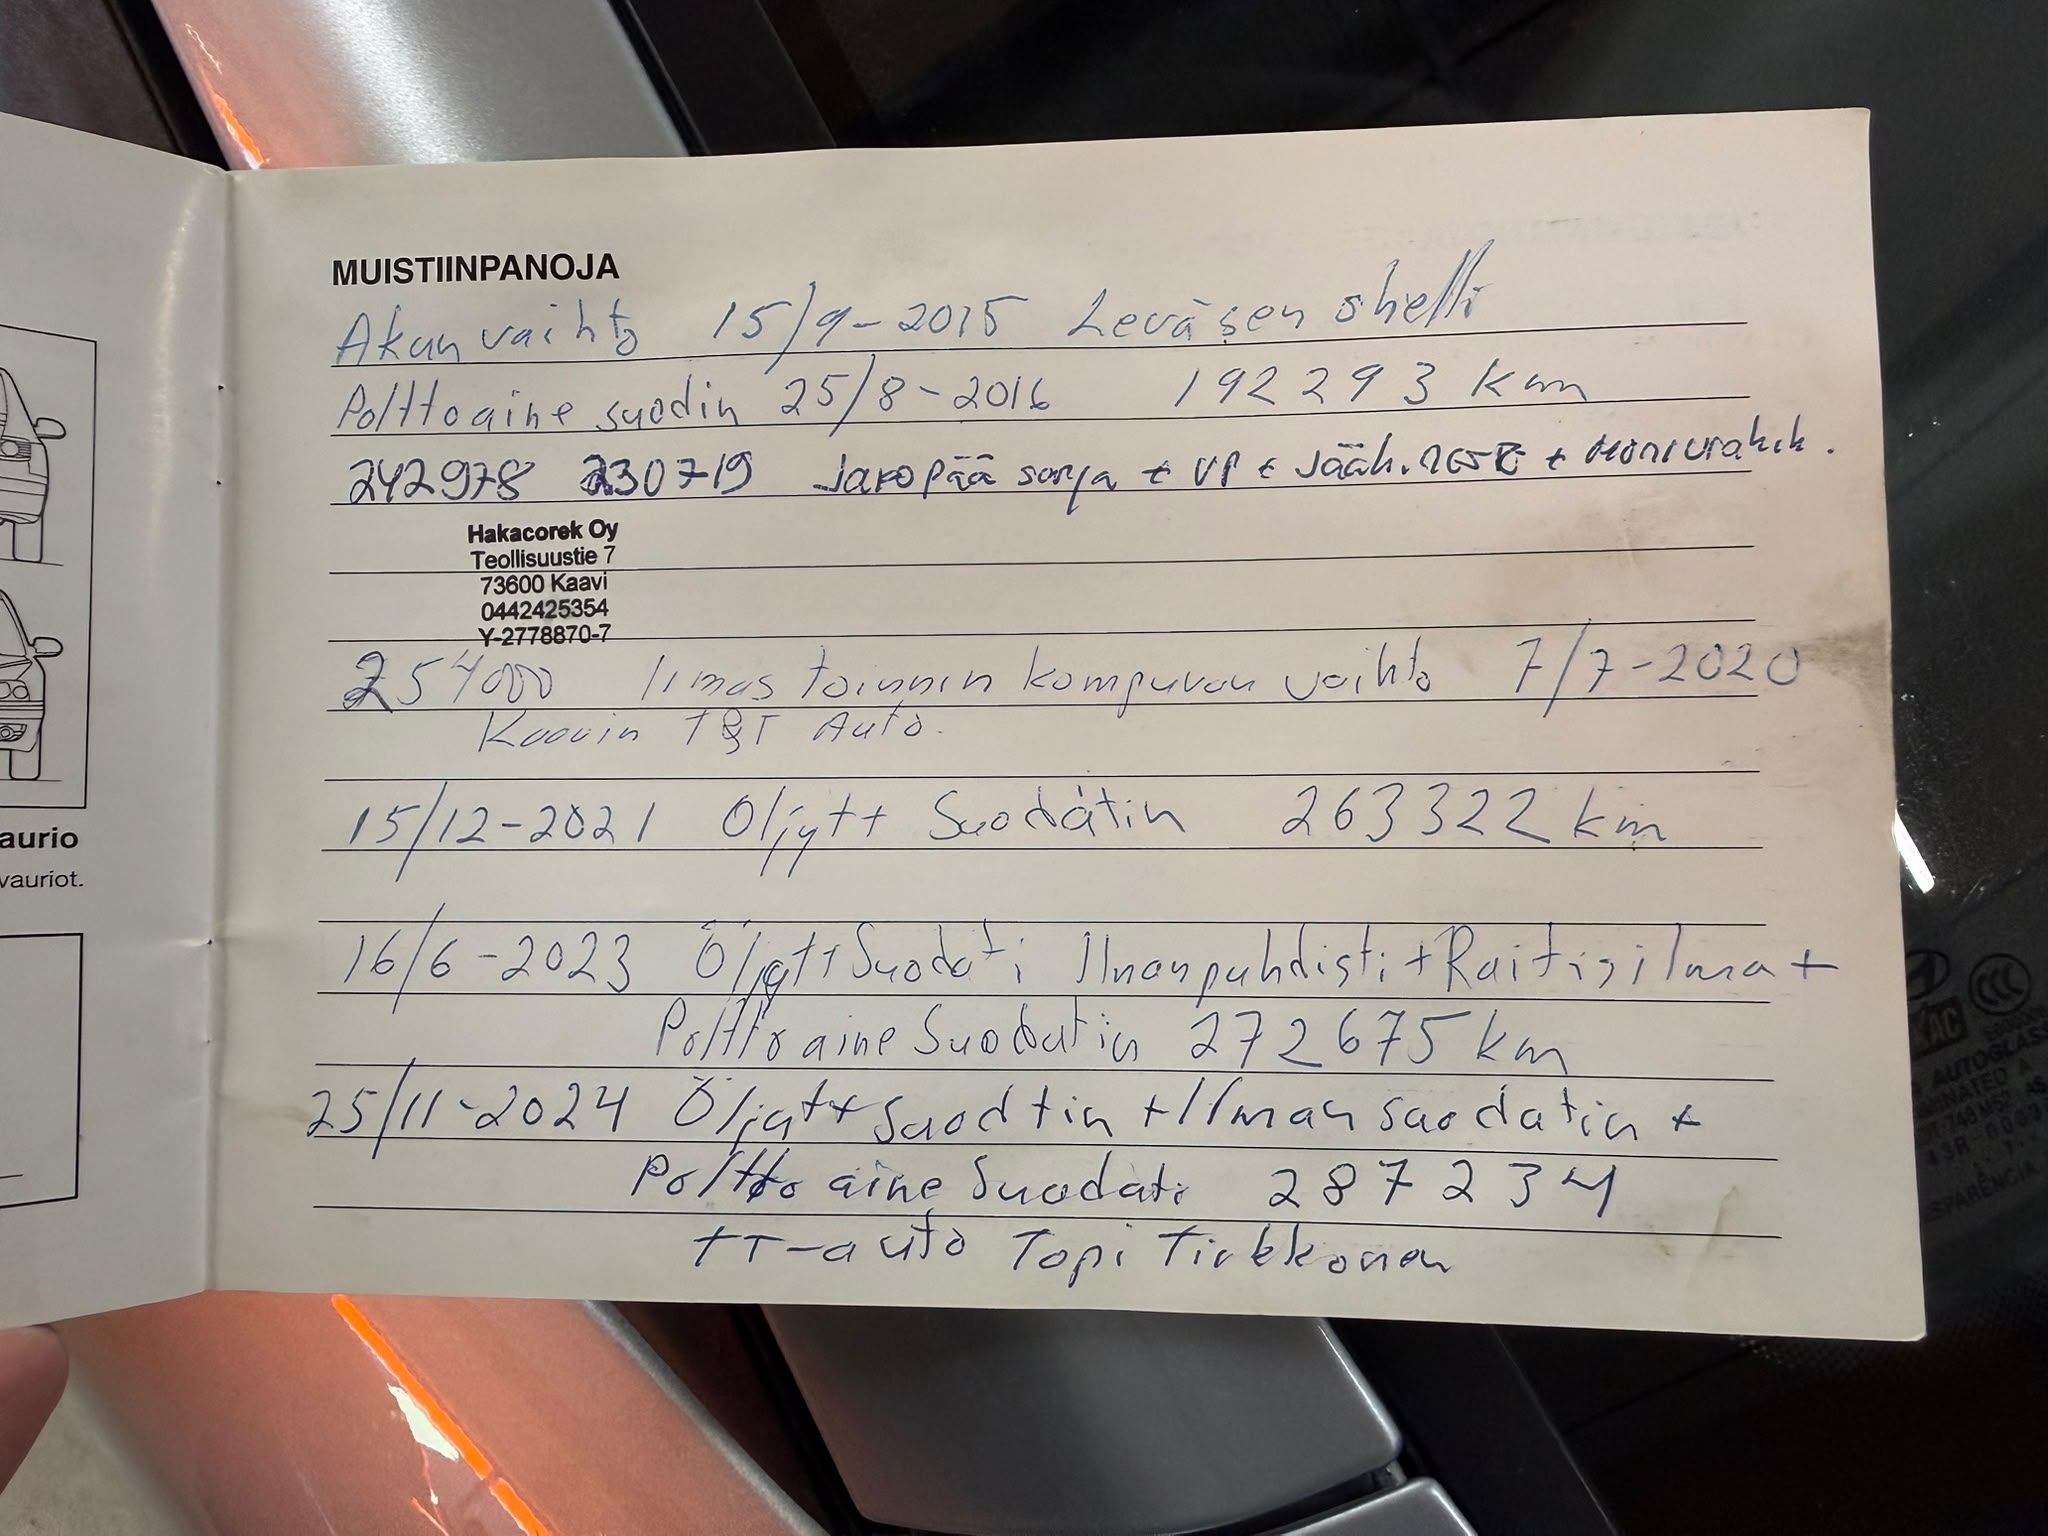 MUISTIINPANOJA
Akun vaihto 15/9-2015 Leväsen shelli
Polttoaine suodin 25/8-2016 192293 km
242978 230719 Jakopää sarja + VP + Jääh. + Moniurahih.
Hakacorek Oy
Teollisuustie 7
73600 Kaavi
0442425354
Y-2778870-7
254000 Ilmas toinnin kompuran vaihto 7/7-2020
Kaavin T&T Auto.
15/12-2021 Öljyt+ Suodatin 263322 km
16/6-2023 Öljyt+Suodati Ilmanpuhdisti+Raitisilma+
Polttoaine Suodatin 272675 km
25/11-2024 Öljyt+ Suodtin +Ilman suodatin +
Polttoaine Suodati 287234
TT-auto Topi Tirkkonen
aurio
vauriot.
CCC
AUTOGLASS